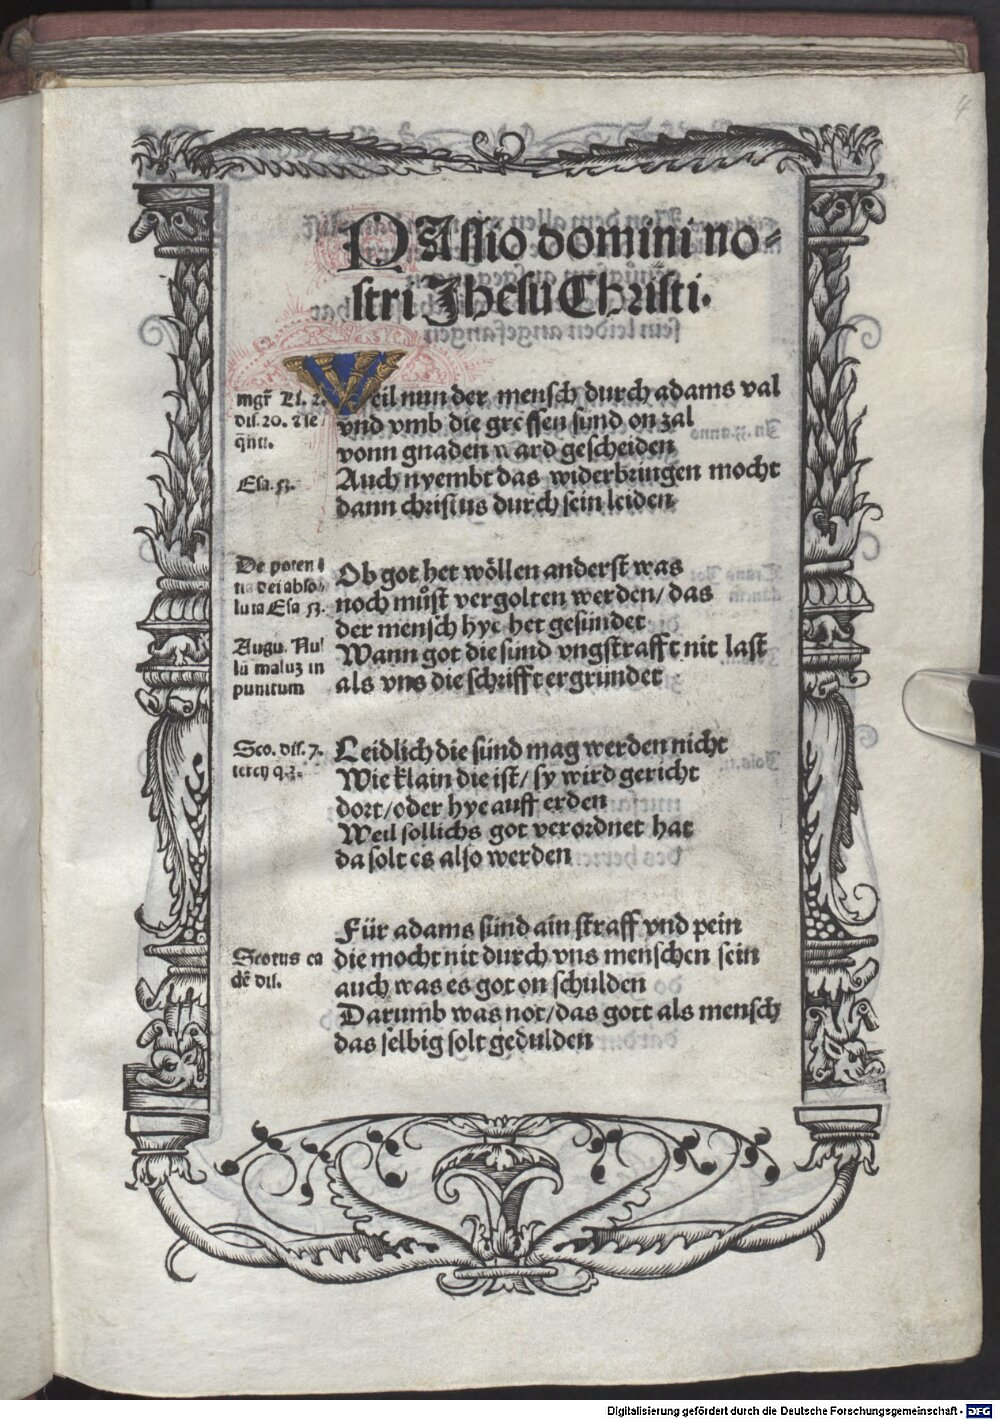 PAssio domini no-
stri Jhesu Christi.
Weil nun der mensch durch adams val
vnd vmb die grossen sünd on zal
vonn gnaden ward gescheiden
Auch nyembt das widerbringen mocht
dann christus durch sein leiden
mgr̄ Li. 2.
dis. 20. 
Esa. 53.
Ob got het wöllen anderst was
noch můst vergolten werden/ das
der mensch hye het gesündet
Wann got die sünd vngstrafft nit last
als vns die schrifft ergrundet
De poten
tia dei abso-
luta Esa 53.
Augu. Nul
lū maluʒ in
punitum
Leidlich die sünd mag werden nicht
Wie klain die ist/ sy wird gericht
dort/ oder hye auff erden
Weil sollichs got verordnet hat
da solt es also werden
Sco. dis. 7.
tercij q.3.
Für adams sünd ain straff vnd pein
die mocht nit durch vns menschen sein
auch was es got on schulden
Darumb was not/ das gott als mensch
das selbig solt gedulden
Scotus ea
dē dis.
4
Digitalisierung gefördert durch die Deutsche Forschungsgemeinschaft - DFG